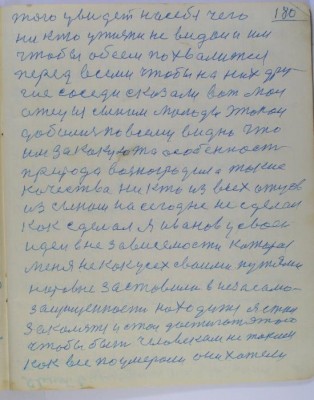 180
того увидет на себя чего
ни кто у них не видал и им
чтобы обоем похвалится
перед всеми чтобы на них дру-
гие соседи сказали вот мол
отец и сыном молодцы этого
добился по всему видно что
им за какую та особенност
природа вознагродила и такие
качества ни кто из всех отцов
из сынами на сегодне не сделал
как сделал я Иванов у своей
идеи в не зависемости которая
меня не как усех своими путями
заставила в
защищенности находится я стал
и стал достигат этого
чтобы быть человеком не таким
как все по умерали они хотели